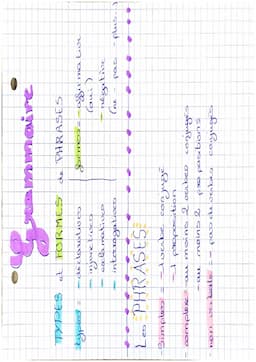 Grammaire
TYPES et FORMES de PHRASES
types: - déclarative formes: - affirmative
- injonctive (oui)
- exclamative - négative
- interrogative (ne - pas - plus..)
Les PHRASES:
- simples: - 1 verbe conjugué
- 1 proposition
- complexe: - au moins 2 verbes conjugués
- au moins 2 propositions
- non verbale: - pas de verbe conjugué